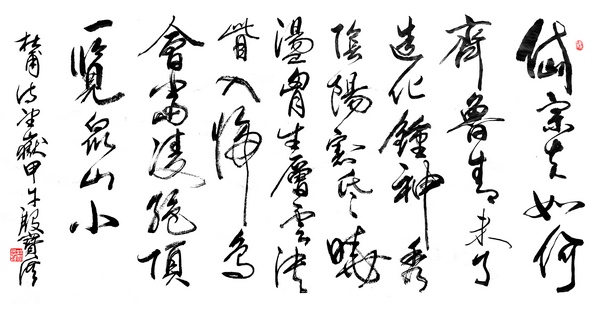 岱宗夫如何
齊魯青未了
造化鍾神秀
陰陽割昏曉
盪胷生層雲決
眥入歸鳥
會當凌絕頂
一覽衆山小
杜甫詩望嶽甲午殷寶